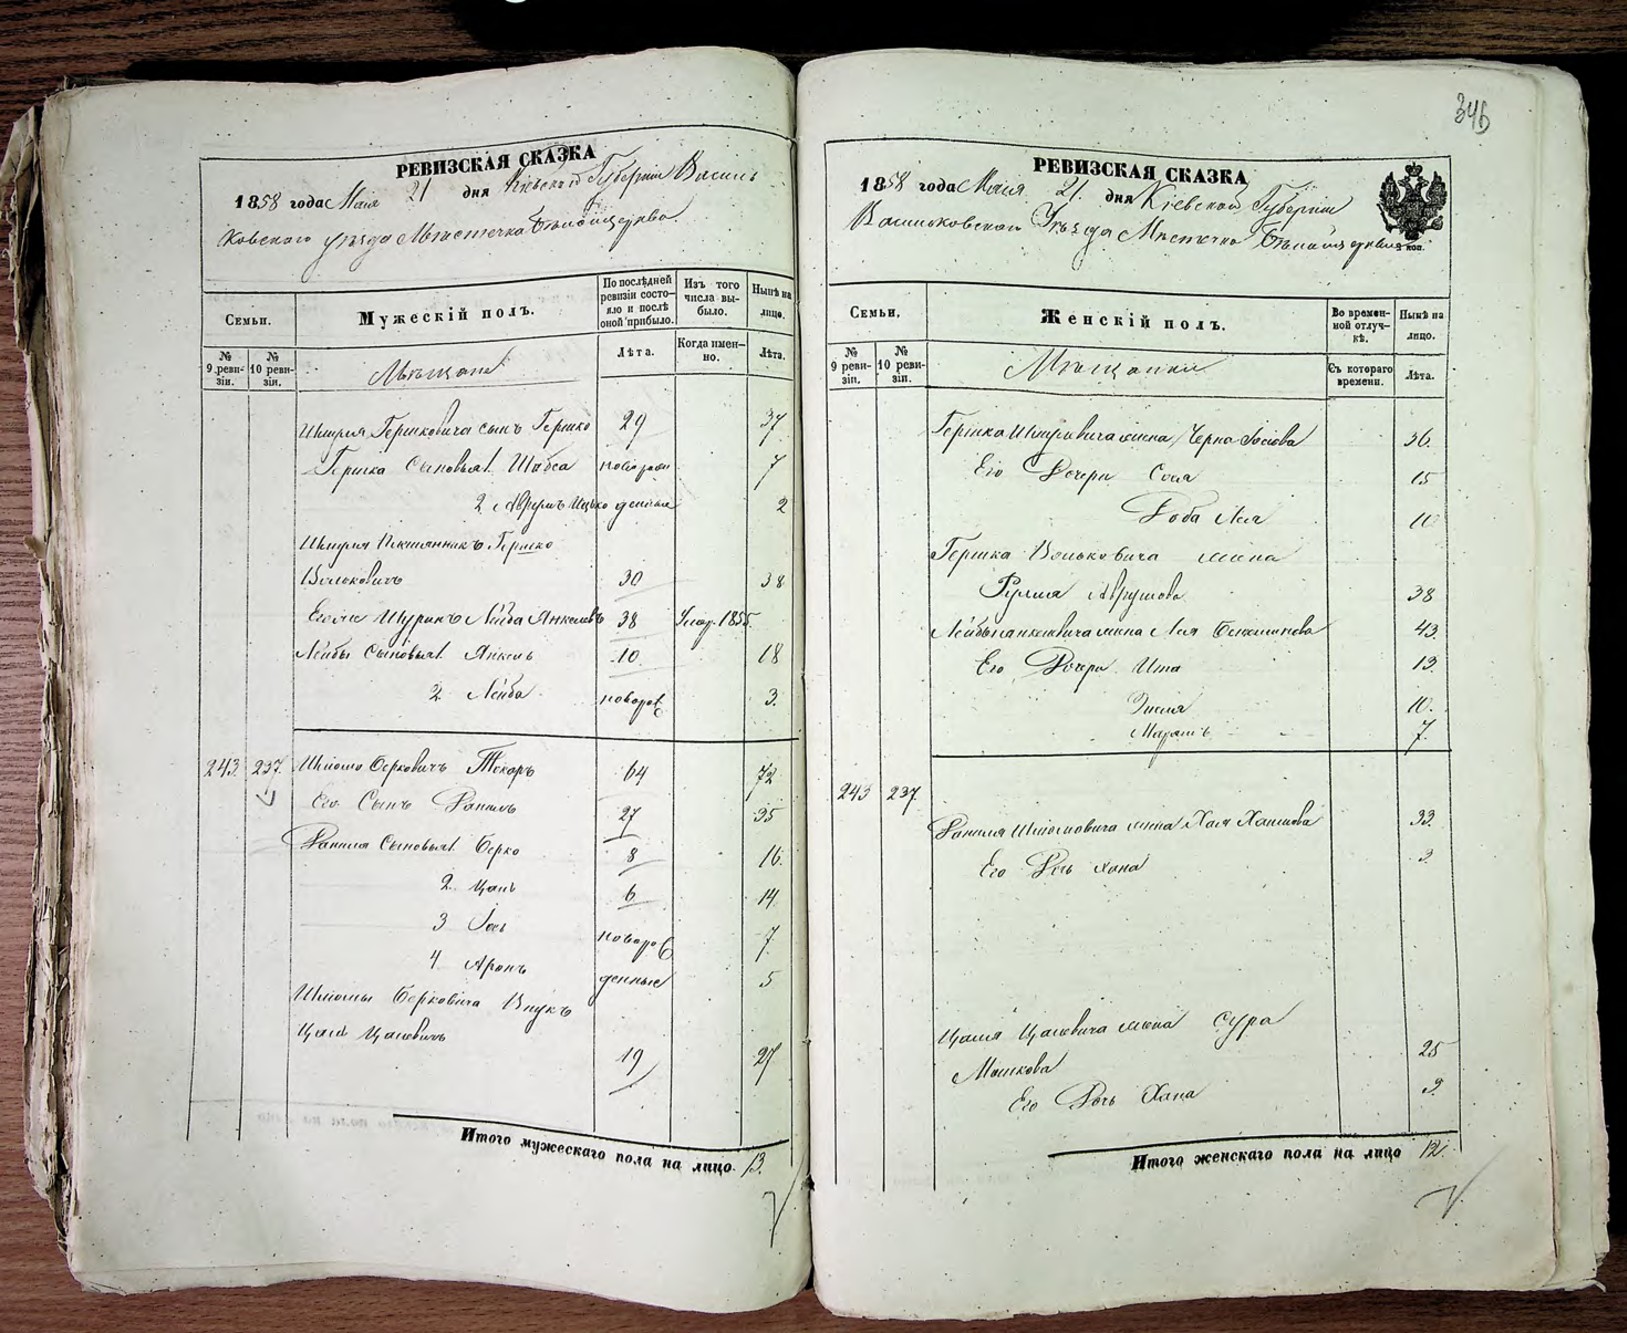 346
РЕВИЗСКАЯ СКАЗКА
1858 года Маія 21 дня Кіевской Губерніи Василь
ковскаго уѣзда Мѣстечка Бѣлойцеркви
Семьи.
Мужескій полъ.
По послѣдней ревизіи состояло и послѣ оной прибыло.
Изъ того числа выбыло.
Нынѣ на лицо.
№ 9 ревизіи.
№ 10 ревизіи.
Мѣщане
Лѣта.
Когда именно.
Лѣта.
Шмуля Гершковича сынъ Гершко 29 37
Гершка Сыновья 1. Шабса новорож 7
2 Аврумъ Ицько денные 2
Шмуля Племянникъ Гершко
Вольковичъ 30 38
Его Шуринъ Лейба Янкелевъ 38 Умер. 1855.
Лейбы Сыновья 1. Янкель 10. 18
2 Лейба новорож 3.
243 237. Шлиомо Берковичъ Токарь 64 72
Его Сынъ Данилъ 27 35
Данила Сыновья 1. Берко 8 16.
2. Цаль 6 14
3 Іось новорож 7.
4. Аронъ денные 5
Шлиомы Берковича Внукъ
Цаля Цалевичъ 19 27
Итого мужескаго пола на лицо 13.
РЕВИЗСКАЯ СКАЗКА
1858 года Маія 21. дня Кіевской Губерніи
Васильковскаго Уѣзда Мѣстечка Бѣлойцеркви
коп.
Семьи.
Женскій полъ.
Во временной отлучкѣ.
Нынѣ на лицо.
№ 9 ревизіи.
№ 10 ревизіи.
Мѣщанки
Съ котораго времени.
Лѣта.
Гершка Шмулевича жена Черна Іосіова 36.
Его Дочери Сося 15
Доба Лея 10
Гершка Вольковича жена
Рухля Аврумова 38
Лейбы Янкелевича жена Лея Беньминова 43.
Его Дочери Ита 13.
10.
7.
243 237.
Данила Шлиомовича жена Хая Хаимова 33.
Его Дочь Хана 3
Цаля Цалевича жена Сура
Мошкова 25
Его Дочь Хана 3.
Итого женскаго пола на лицо 12.